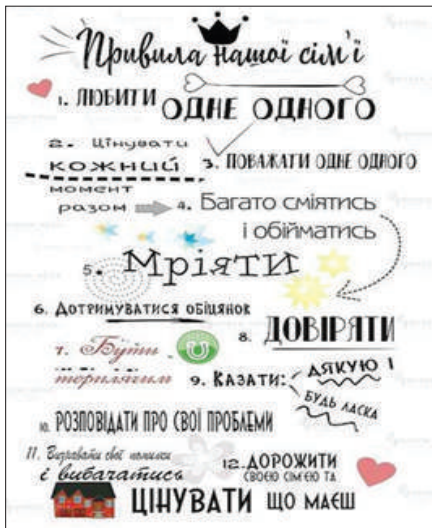 Правила нашої сім'ї
1. ЛЮБИТИ ОДНЕ ОДНОГО
2. Цінувати
КОЖНИЙ
момент
разом
3. ПОВАЖАТИ ОДНЕ ОДНОГО
4. Багато сміятись
і обійматись
5. Мріяти
6. ДОТРИМУВАТИСЯ ОБІЦЯНОК
7. Бути
терплячим
8. ДОВІРЯТИ
9. КАЗАТИ: ДЯКУЮ І
БУДЬ ЛАСКА
10. РОЗПОВІДАТИ ПРО СВОЇ ПРОБЛЕМИ
11. Визнавати свої помилки
і вибачатись
12. ДОРОЖИТИ
СВОЄЮ СІМ'ЄЮ ТА
ЦІНУВАТИ ЩО МАЄШ